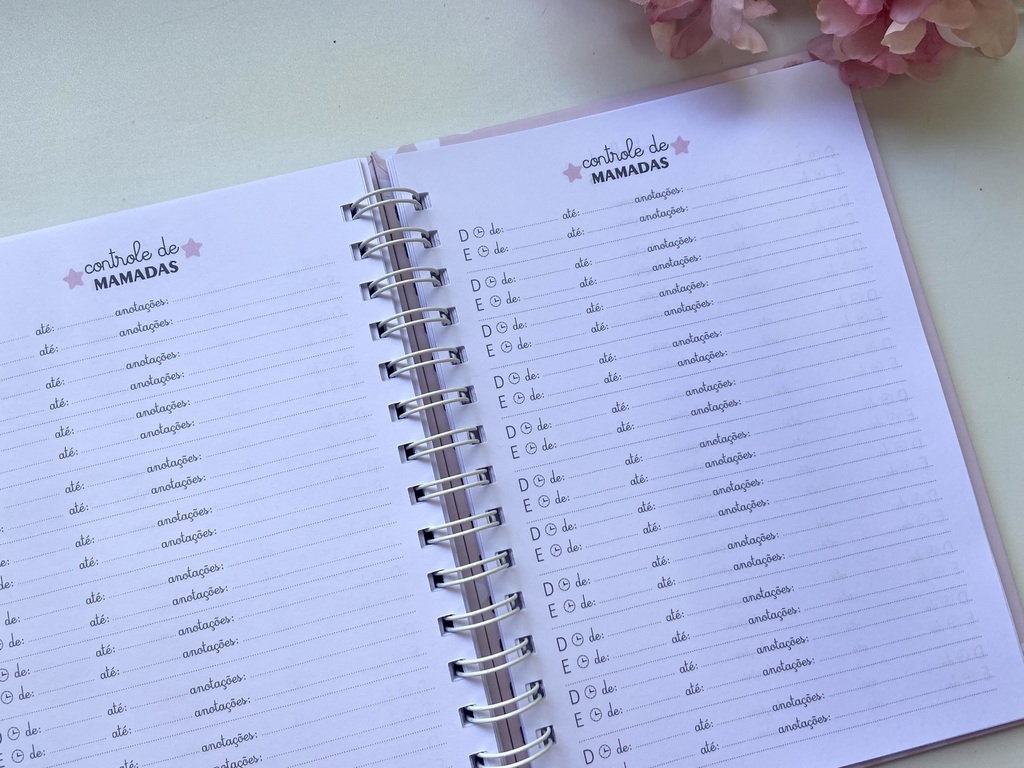 controle de
MAMADAS
até: anotações:
até: anotações:
até: anotações:
até: anotações:
até: anotações:
até: anotações:
até: anotações:
até: anotações:
até: anotações:
de: até: anotações:
de: até: anotações:
de: até: anotações:
de: até: anotações:
de: até: anotações:
de: até: anotações:
E de: até: anotações:
até: anotações:
anotações:
controle de
MAMADAS
D de: até: anotações:
E de: até: anotações:
D de: até: anotações:
E de: até: anotações:
D de: até: anotações:
E de: até: anotações:
D de: até: anotações:
E de: até: anotações:
D de: até: anotações:
E de: até: anotações:
D de: até: anotações:
E de: até: anotações:
D de: até: anotações:
E de: até: anotações:
D de: até: anotações:
E de: até: anotações:
D de: até: anotações:
E de: até: anotações:
D de: até: anotações:
E de: até: anotações:
D de: até: anotações:
até: anotações: